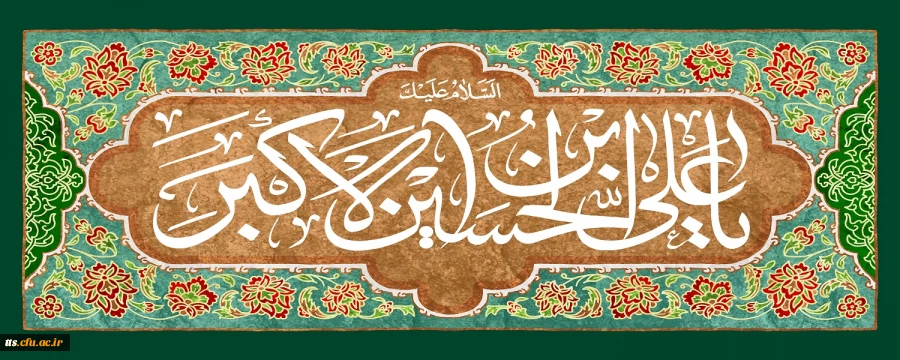 اَلسَّلامُ عَلَیْكَ
یا علی ابن الحسین الاکبر
tts.cfu.ac.ir